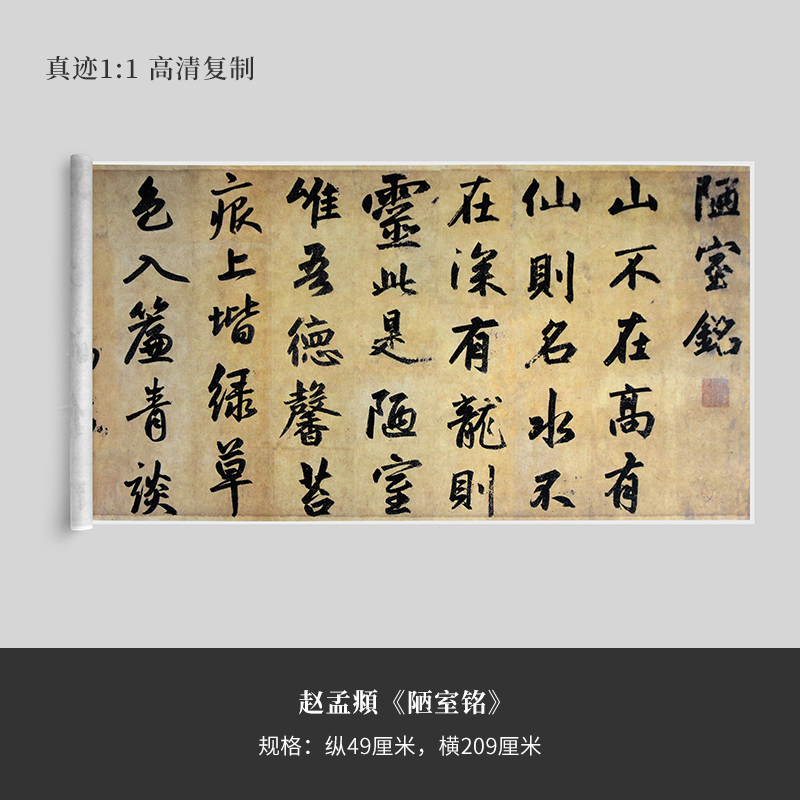 真迹1:1 高清复制
陋室銘
山不在高有
仙則名水不
在深有龍則
靈此是陋室
唯吾德馨苔
痕上堦緑草
色入簾青談
赵孟頫《陋室铭》
规格：纵49厘米，横209厘米